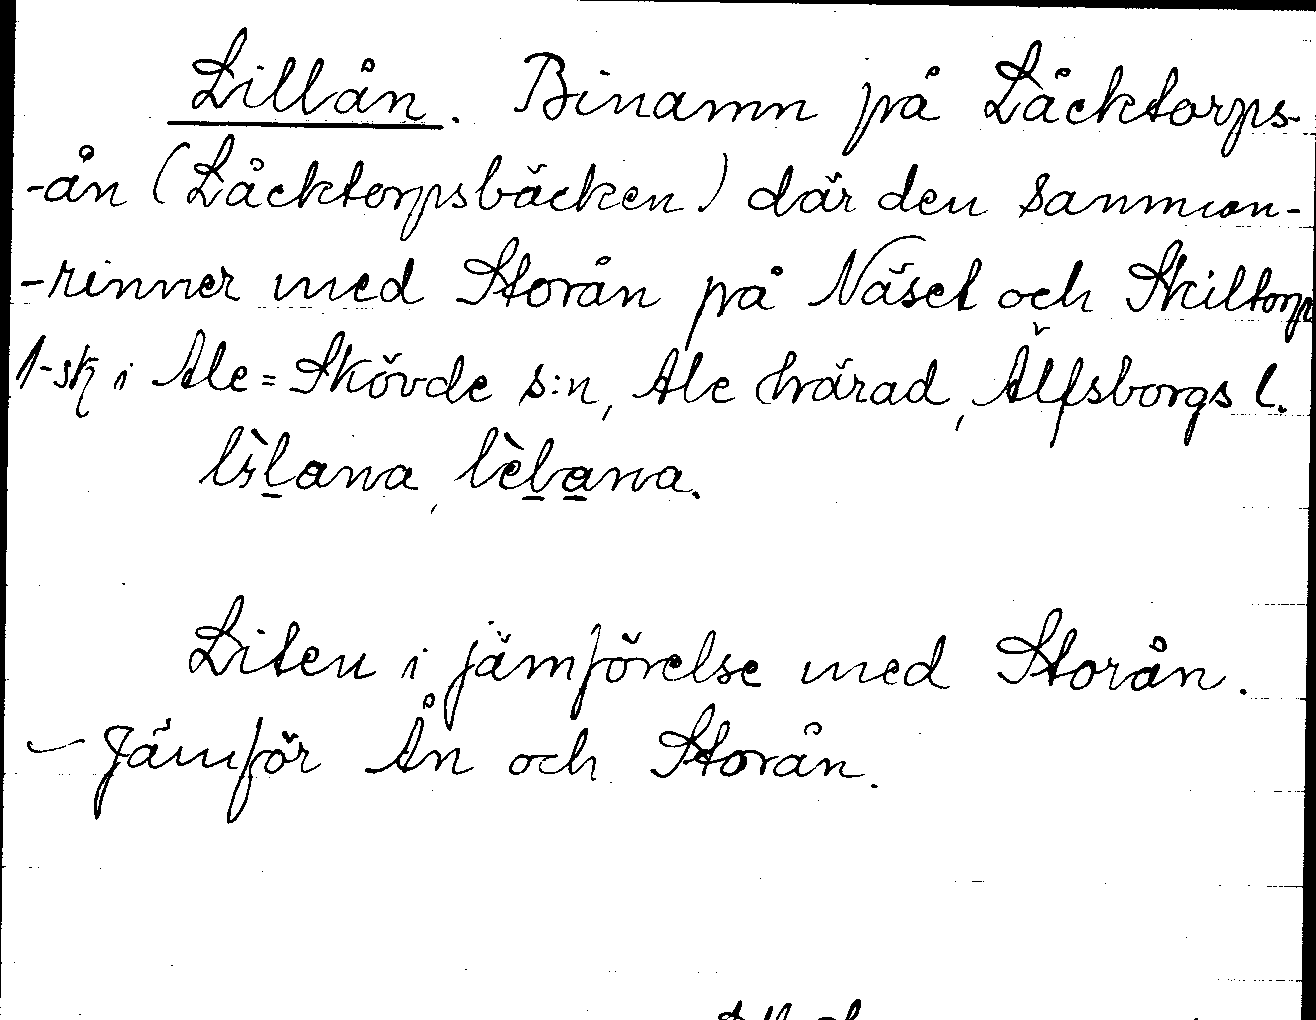 Lillån. Binamn på Låcktorps-
-ån (Låcktorpsbäcken) där den samman-
-rinner med Storån på Näset och Skiltorp
1-sk i Ale=Skövde s:n, Ale härad, Älfsborgs l.
Liten i jämförelse med Storån.
– Jämför Ån och Storån.